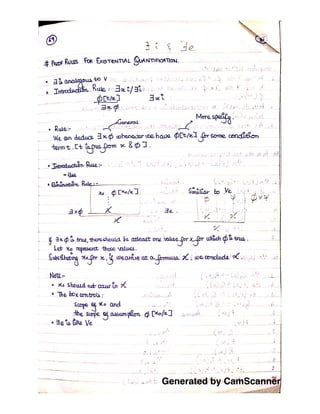 69
∃i & ∃e
# PROOF RULES FOR EXISTENTIAL QUANTIFICATION.
• ∃ is analogous to ∨
• Introduction Rule: ∃x i / ∃i:
φ[t/x]
∃x i
∃x φ
General
More specific
• Rule:-
We can deduce ∃xφ whenever we have φ[t/x] for some
term t. [t is free from x & φ].
• Introduction Rule:-
- Use
• Elimination Rule:-
x₀ φ[x₀/x]
Similar to ∨e
φ ∨ ψ
∃xφ χ
∃e
χ
χ
If ∃xφ is true, there should be atleast one value for x for which φ is true.
Let x₀ represent those values.
Substituting x₀ for x, if we arrive at a formula χ; we conclude χ
Note:-
• x₀ should not occur in χ
• The box controls:
Scope of x₀ and
the scope of assumption φ[x₀/x]
• ∃e is like ∨e
Generated by CamScanner